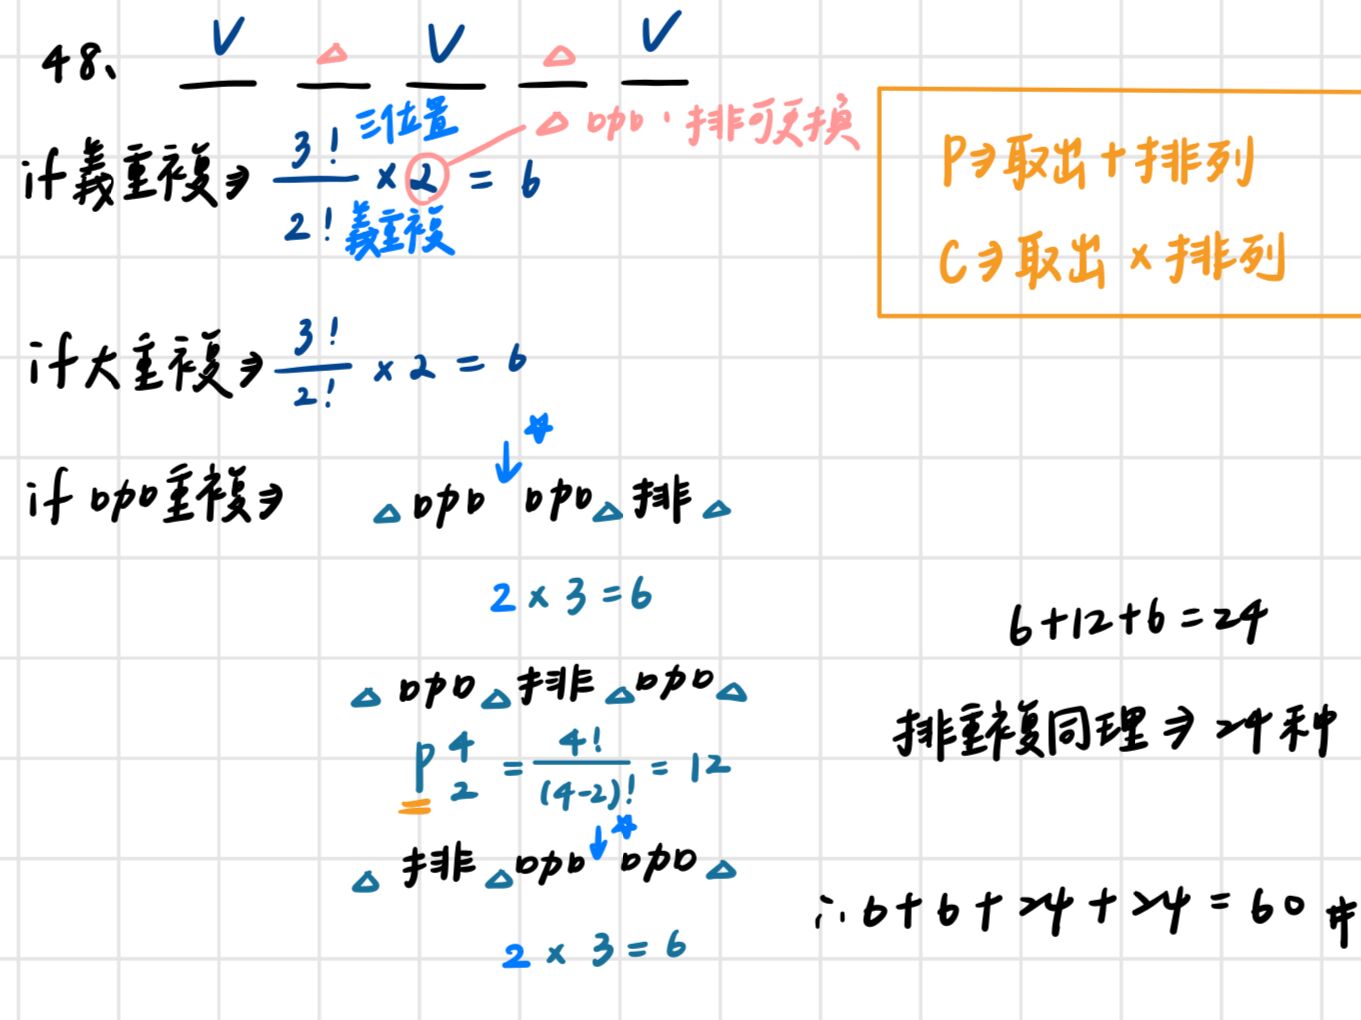 48、 V △ V △ V
if 義重複⇒ 3!/2! × 2 = 6
三位置
義重複
△ 咖、排可更換
P⇒取出+排列
C⇒取出×排列
if 大重複⇒ 3!/2! × 2 = 6
if 咖重複⇒ △咖↓☆咖△排△
2 × 3 = 6
△咖△排△咖△
P 4 2 = 4!/(4-2)! = 12
△排△咖↓☆咖△
2 × 3 = 6
6+12+6=24
排重複同理⇒24種
∴ 6+6+24+24=60 #